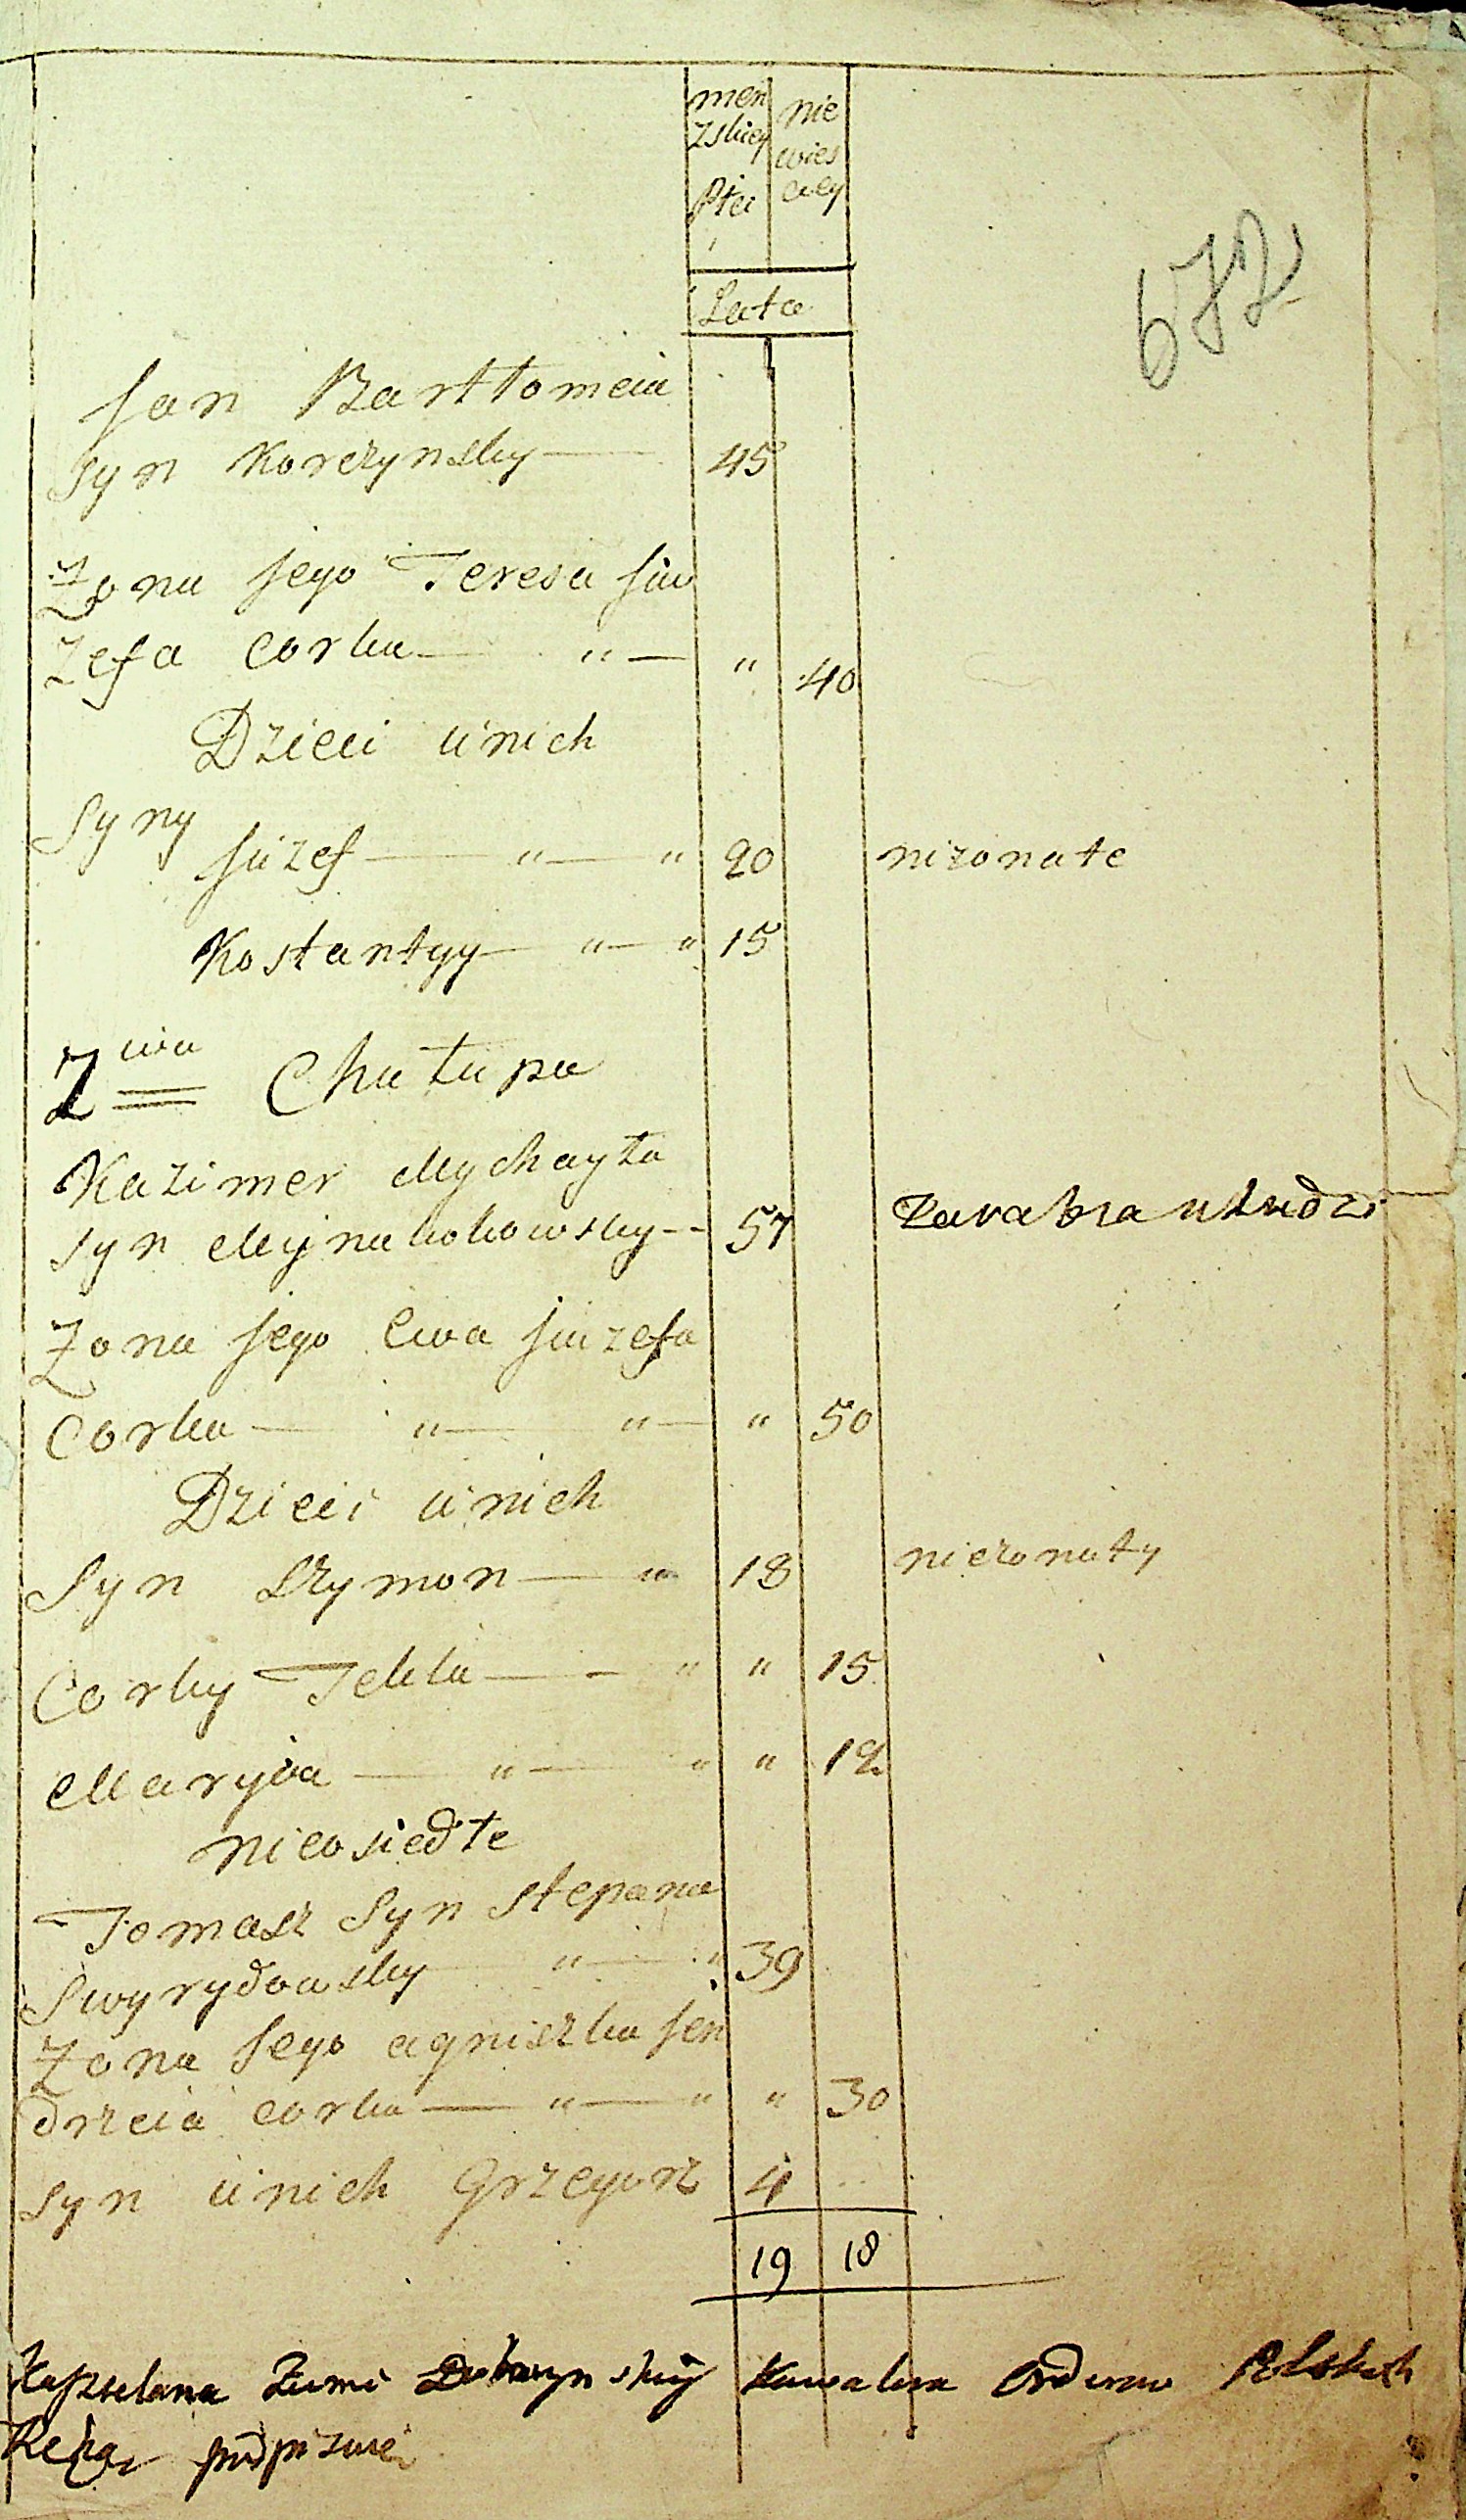 men nie
zskiey wies
Płci ciey
Lata
677
Jan Bartłomeia
Syn Korczynsky — 45
Żona Jego Teresa Jiu
zefa Corka — " — " 40
Dzieci u nich
Syny
Juzef — " — " 20 niżonate
Kostantyy — " — " 15
2 wa Chałupa
Kazimer Mychayła
Syn — 57 Zarabia u Ludzi
Żona Jego Ewa Juzefa
Corka — " — " — " 50
Dzieci u nich
Syn Szymon — " 18 nieżonaty
Corky Tekla — - " " 15
Maryia — " — " " 12
nieosiedłe
Tomasz Syn Stepana
Swyrydowsky " — " 39
Żona Jego agniszka Jen
drzeia corka — " — " " 30
Syn u nich Grzegorz 4
19 18
Kasztelana Ziemi Dobrzynskiy Kawalera Orderow Polskich
Ręką podpisuie